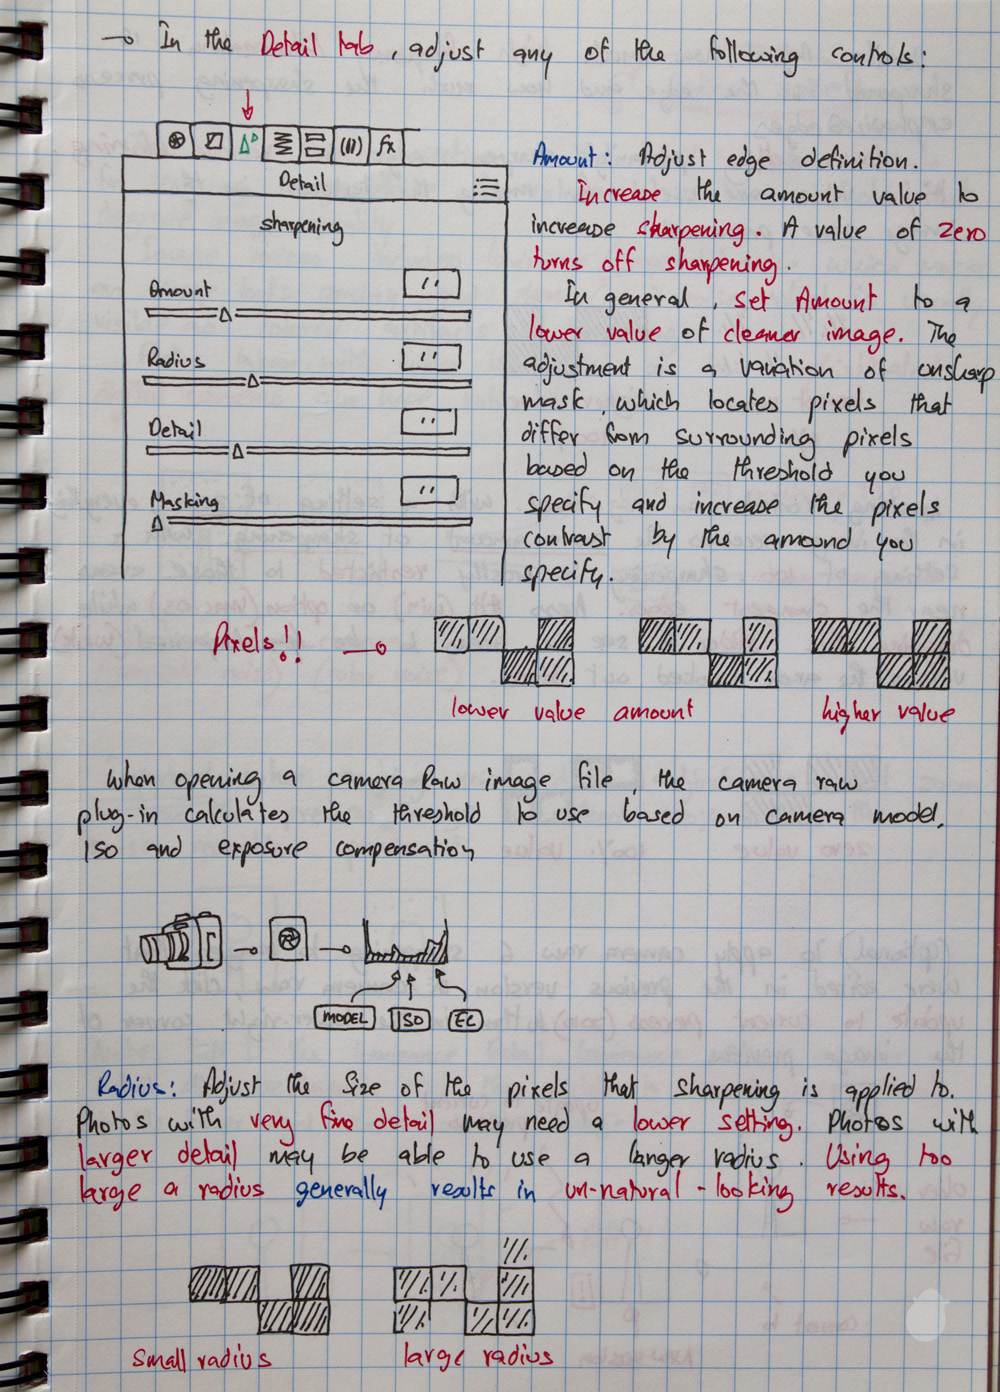 → In the Detail tab, adjust any of the following controls:
fx
Detail
sharpening
Amount
Radius
Detail
Masking
Amount: Adjust edge definition.
Increase the amount value to
increase sharpening. A value of zero
turns off sharpening.
In general, set Amount to a
lower value of cleaner image. The
adjustment is a variation of unsharp
mask, which locates pixels that
differ from surrounding pixels
based on the threshold you
specify and increase the pixels
contrast by the amound you
specify.
Pixels!! →
lower value amount
higher value
when opening a camera Raw image file, the camera raw
plug-in calculates the threshold to use based on camera model,
ISO and exposure compensation
MODEL ISO EC
Radius: Adjust the size of the pixels that sharpening is applied to.
Photos with very fine detail may need a lower setting. Photos with
larger detail may be able to use a larger radius. Using too
large a radius generally results in un-natural-looking results.
small radius
large radius